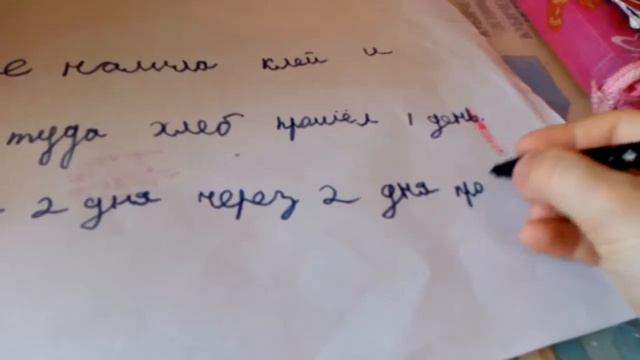 е налила клей и
туда хлеб прошёл 1 день.
2 дня через 2 дня про